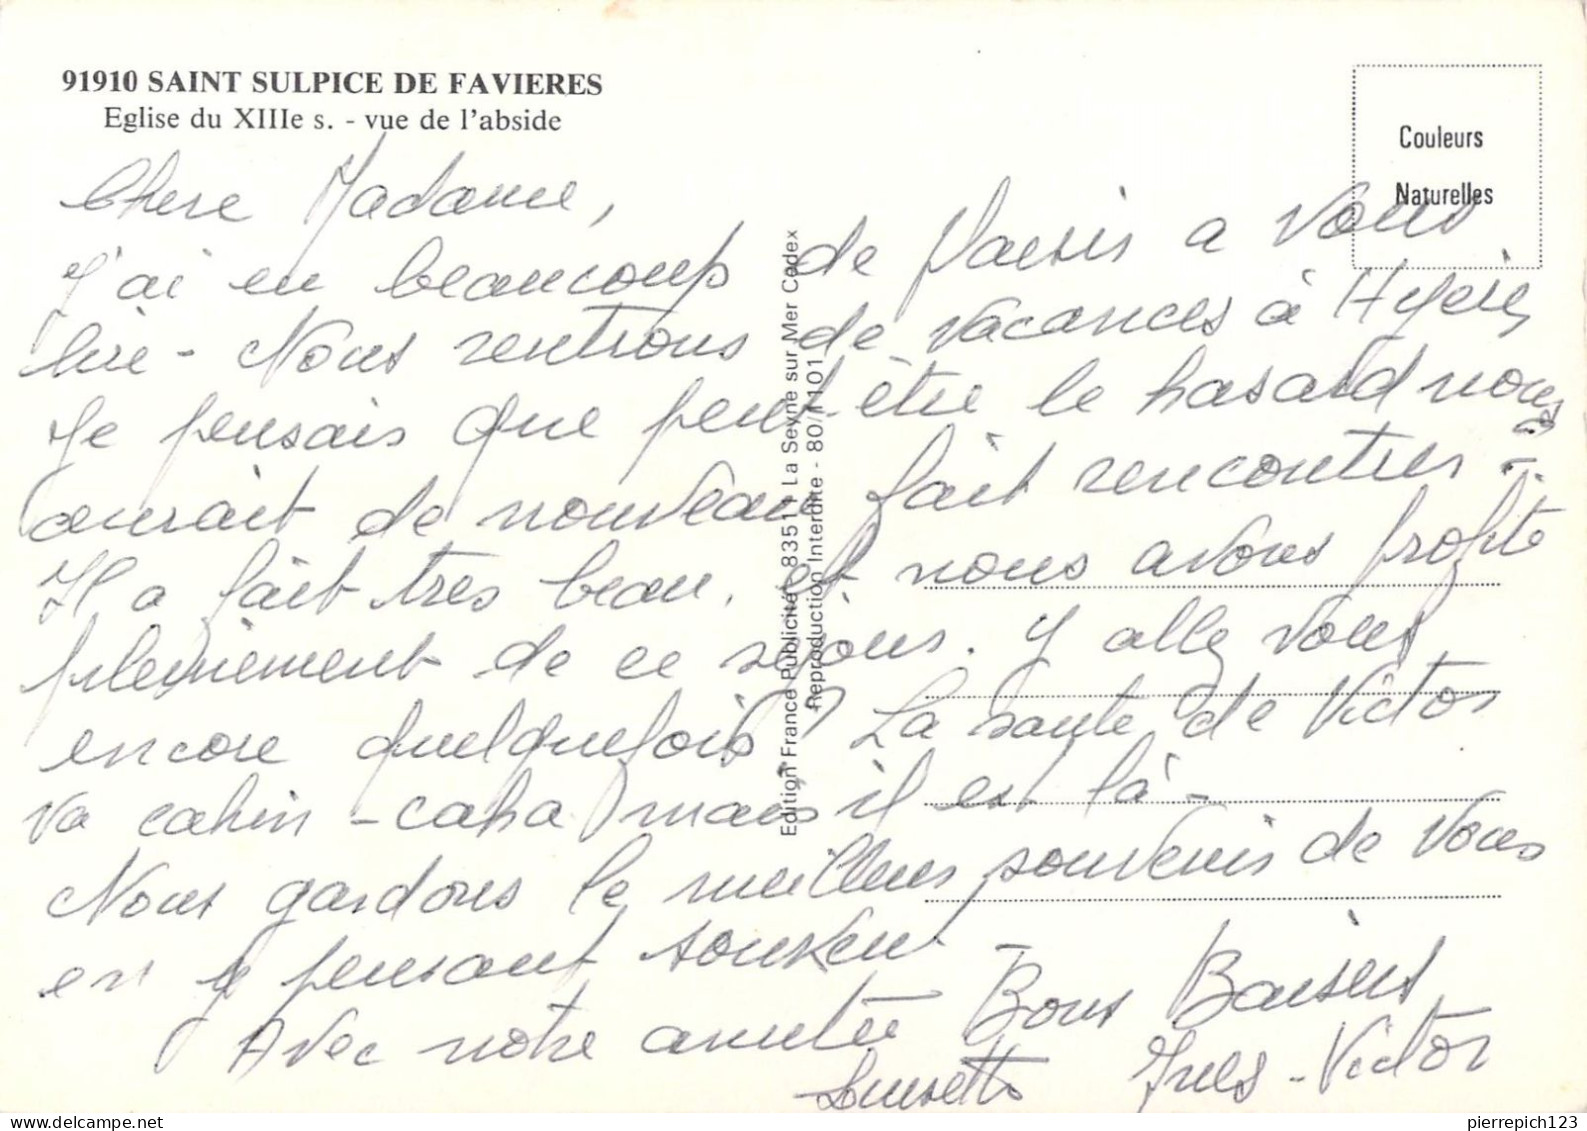 91910 SAINT SULPICE DE FAVIERES
Eglise du XIIIe s. - vue de l'abside
Couleurs
Naturelles
Chere Madame,
J'ai eu beaucoup de plaisir a vous
lire - Nous rentrons de vacances à Hyères
Je pensais que peut-être le hasard nous
aurait de nouveau fait rencontrer -
Il a fait tres beau, et nous avons profité
pleinement de ce séjour. Y allez vous
encore quelquefois ? La sante de Victor
va cahin-caha mais il est là -
Nous gardons le meilleur souvenir de vous
en y pensant souvent
Avec notre amitié Bons Baisers
Yves - Victor
Edition France Publicité 83511 La Seyne sur Mer Cedex
Reproduction Interdite - 80/1101
pierrepich123